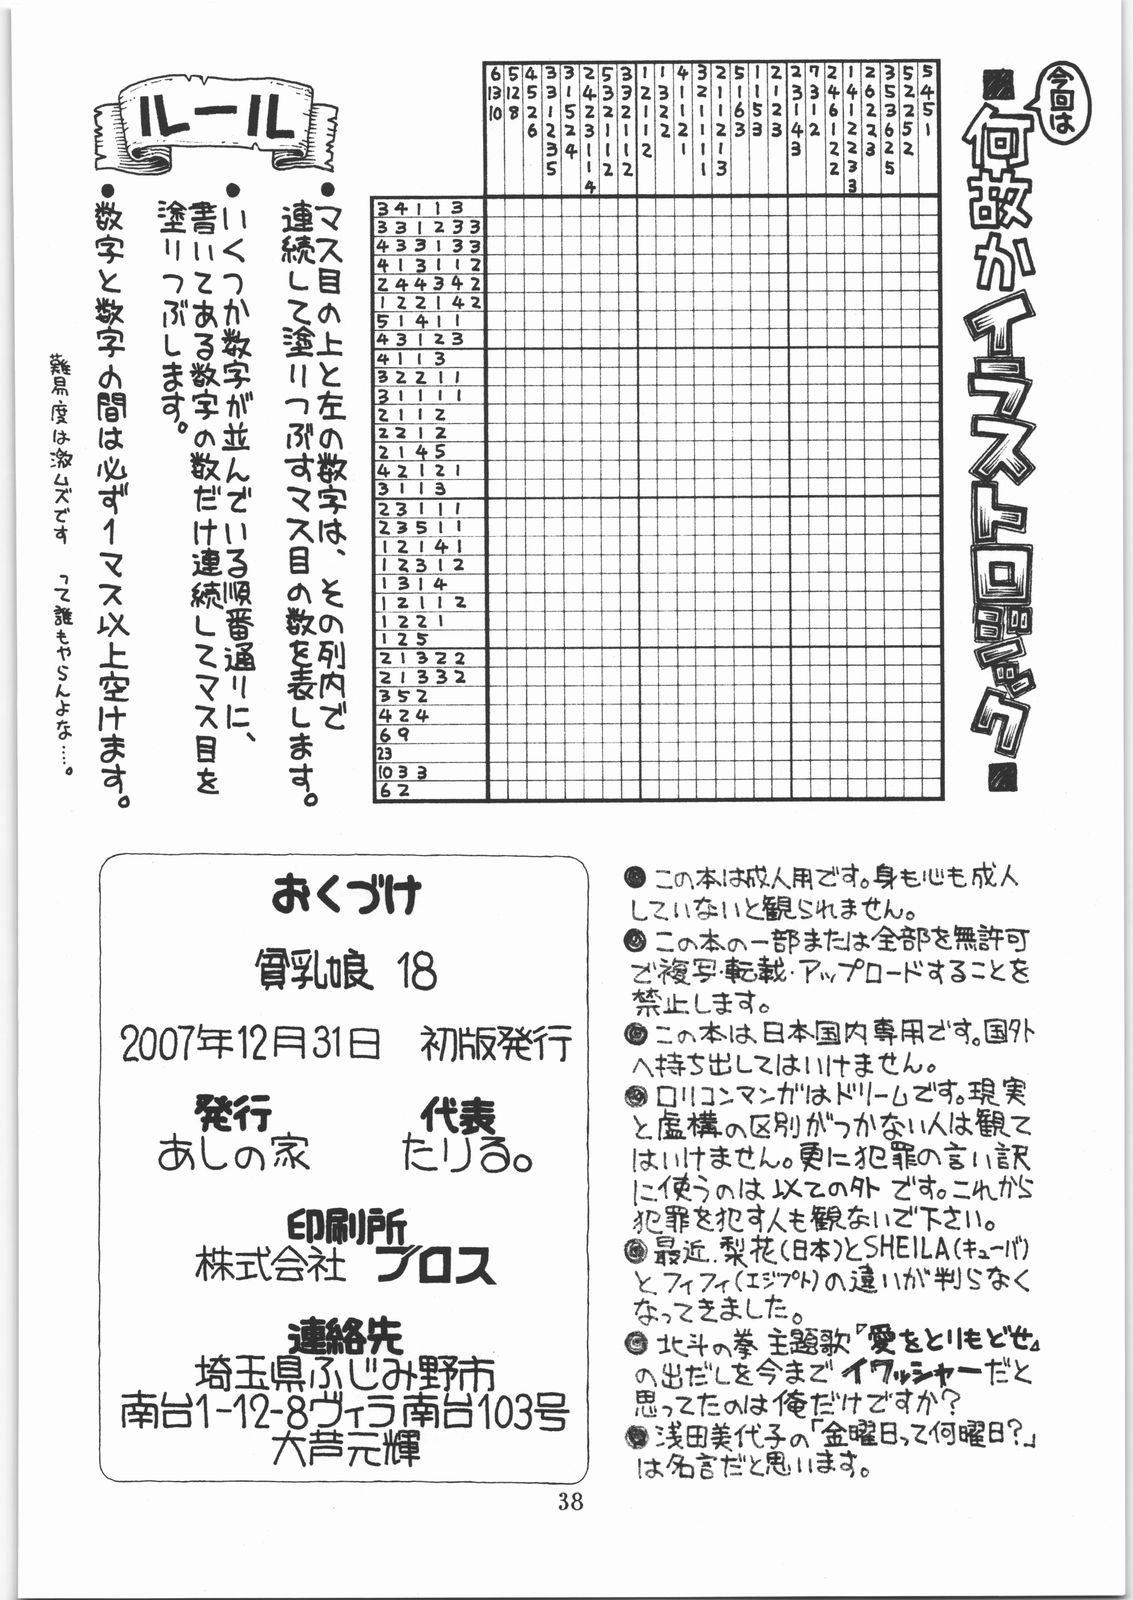 今回は
何故かイラストロジック
ルール
●マス目の上と左の数字は、その列内で
連続して塗りつぶすマス目の数を表します。
●いくつか数字が並んでいる順番通りに、
書いてある数字の数だけ連続してマス目を
塗りつぶします。
●数字と数字の間は必ず1マス以上空けます。
難易度は激ムズです って誰もやらんよな…。
6 13 10
5 12 8
4 5 2 6
3 4 1 1 3
3 3 1 2 3 3
4 3 3 1 3 3
4 1 3 1 1 2
2 4 4 3 4 2
1 2 2 1 4 2
5 1 4 1 1
4 3 1 2 3
4 1 1 3
3 2 2 1 1
3 1 1 1 1
2 1 1 2
2 2 1 2
2 1 4 5
4 2 1 2 1
3 1 1 3
2 3 1 1 1
2 3 5 1 1
1 2 1 4 1
1 2 3 1 2
1 3 1 4
1 2 1 1 2
1 2 2 1
1 2 5
2 1 3 2 2
2 1 3 3 2
3 5 2
4 2 4
6 9
23
10 3 3
6 2
●この本は成人用です。身も心も成人
していないと観られません。
●この本の一部または全部を無許可
で複写・転載・アップロードすることを
禁止します。
●この本は、日本国内専用です。国外
へ持ち出してはいけません。
●ロリコンマンガはドリームです。現実
と虚構の区別がつかない人は観て
はいけません。更に犯罪の言い訳
に使うのは以ての外です。これから
犯罪を犯す人も観ないで下さい。
●最近、梨花(日本)とSHEILA(キューバ)
とフィフィ(エジプト)の違いが判らなく
なってきました。
●北斗の拳 主題歌『愛をとりもどせ』
の出だしを今まで イワッシャーだと
思ってたのは俺だけですか?
●浅田美代子の「金曜日って何曜日?」
は名言だと思います。
おくづけ
貧乳娘 18
2007年12月31日 初版発行
発行 代表
あしの家 たりる。
印刷所
株式会社 ブロス
連絡先
埼玉県ふじみ野市
南台1-12-8ヴィラ南台103号
大芦元輝
38